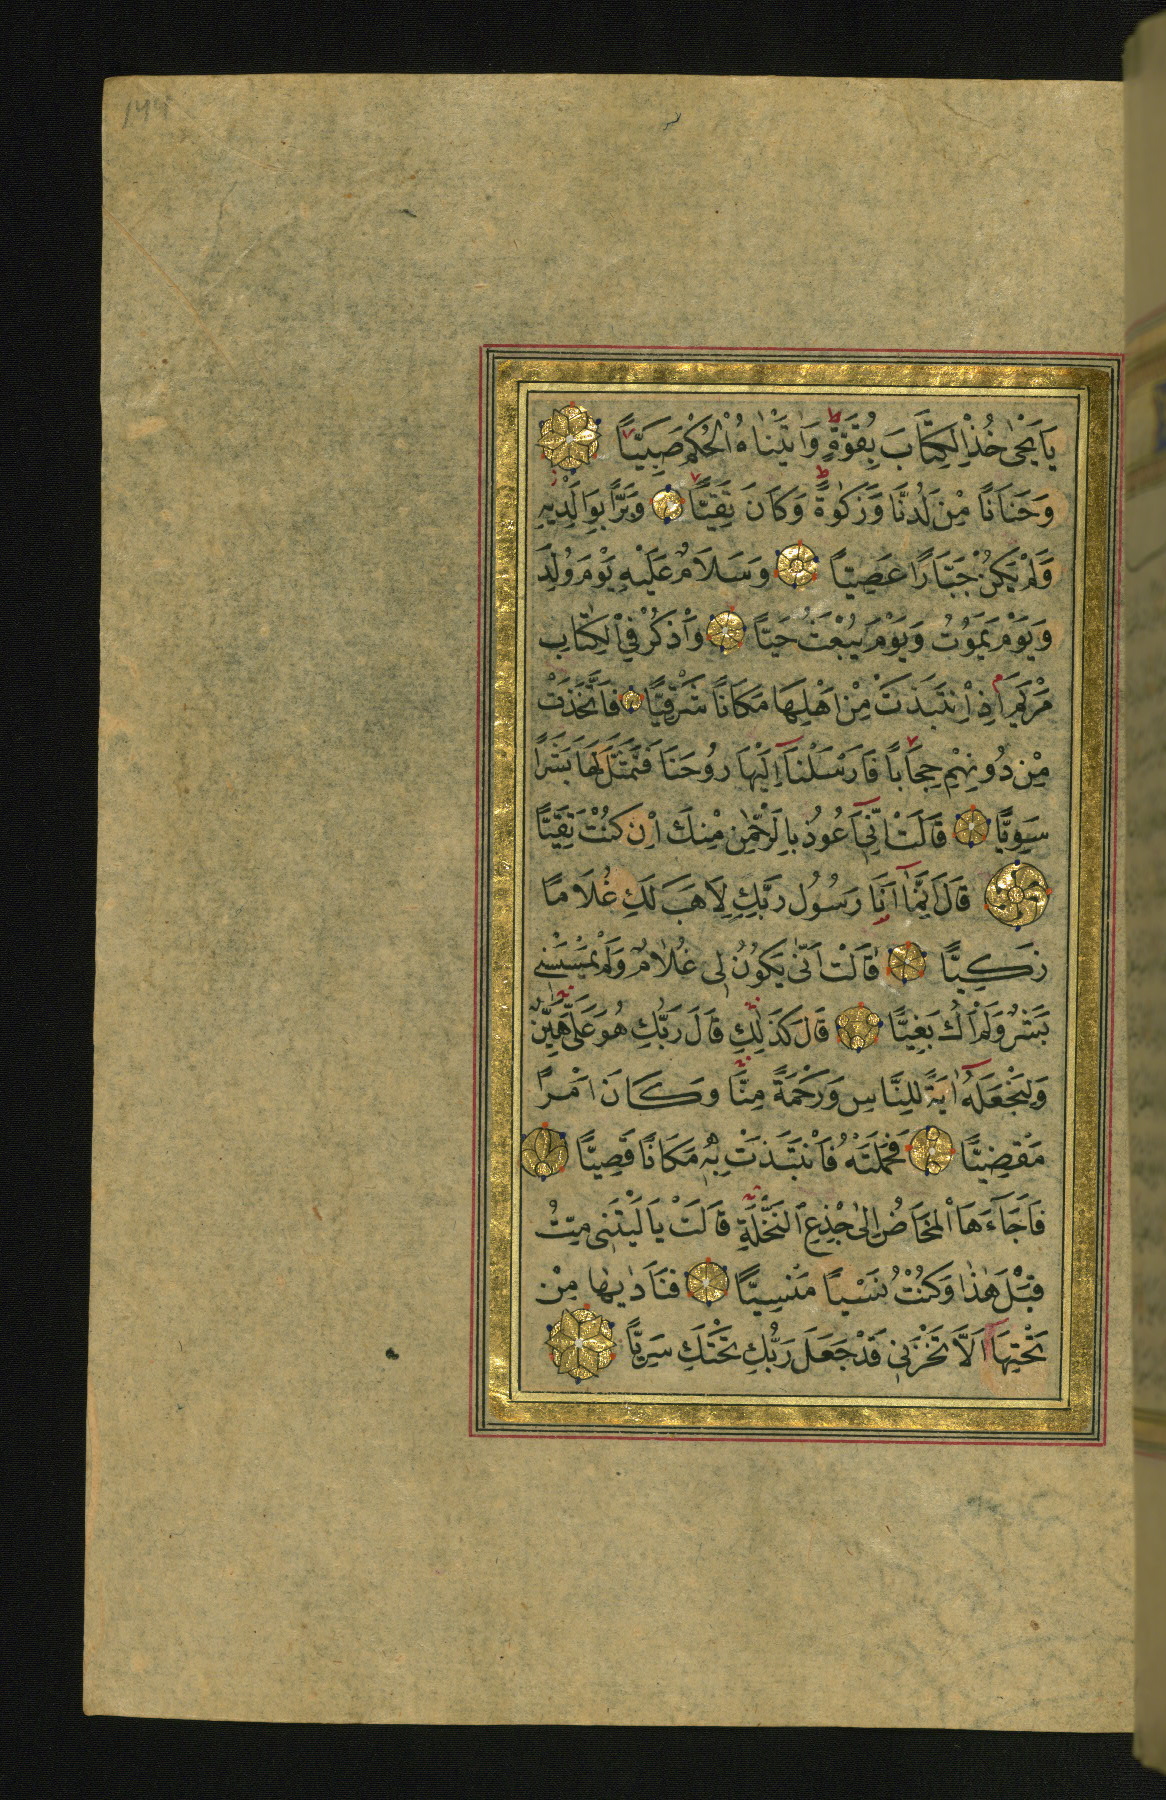 يَا يَحْيٰى خُذِ الْكِتَابَ بِقُوَّةٍ وَاٰتَيْنَاهُ الْحُكْمَ صَبِيًّا
وَحَنَانًا مِنْ لَدُنَّا وَزَكٰوةً وَكَانَ تَقِيًّا وَبَرًّا بِوَالِدَيْهِ
وَلَمْ يَكُنْ جَبَّارًا عَصِيًّا وَسَلَامٌ عَلَيْهِ يَوْمَ وُلِدَ
وَيَوْمَ يَمُوتُ وَيَوْمَ يُبْعَثُ حَيًّا وَاذْكُرْ فِي الْكِتَابِ
مَرْيَمَ اِذِ انْتَبَذَتْ مِنْ اَهْلِهَا مَكَانًا شَرْقِيًّا فَاتَّخَذَتْ
مِنْ دُونِهِمْ حِجَابًا فَاَرْسَلْنَا اِلَيْهَا رُوحَنَا فَتَمَثَّلَ لَهَا بَشَرًا
سَوِيًّا قَالَتْ اِنِّي اَعُوذُ بِالرَّحْمٰنِ مِنْكَ اِنْ كُنْتَ تَقِيًّا
قَالَ اِنَّمَا اَنَا رَسُولُ رَبِّكِ لِاَهَبَ لَكِ غُلَامًا
زَكِيًّا قَالَتْ اَنّٰى يَكُونُ لِي غُلَامٌ وَلَمْ يَمْسَسْنِي
بَشَرٌ وَلَمْ اَكُ بَغِيًّا قَالَ كَذٰلِكِ قَالَ رَبُّكِ هُوَ عَلَيَّ هَيِّنٌ
وَلِنَجْعَلَهُ اٰيَةً لِلنَّاسِ وَرَحْمَةً مِنَّا وَكَانَ اَمْرًا
مَقْضِيًّا فَحَمَلَتْهُ فَانْتَبَذَتْ بِهِ مَكَانًا قَصِيًّا
فَاَجَاءَهَا الْمَخَاضُ اِلٰى جِذْعِ النَّخْلَةِ قَالَتْ يَا لَيْتَنِي مِتُّ
قَبْلَ هٰذَا وَكُنْتُ نَسْيًا مَنْسِيًّا فَنَادٰيهَا مِنْ
تَحْتِهَا اَلَّا تَحْزَنِي قَدْ جَعَلَ رَبُّكِ تَحْتَكِ سَرِيًّا